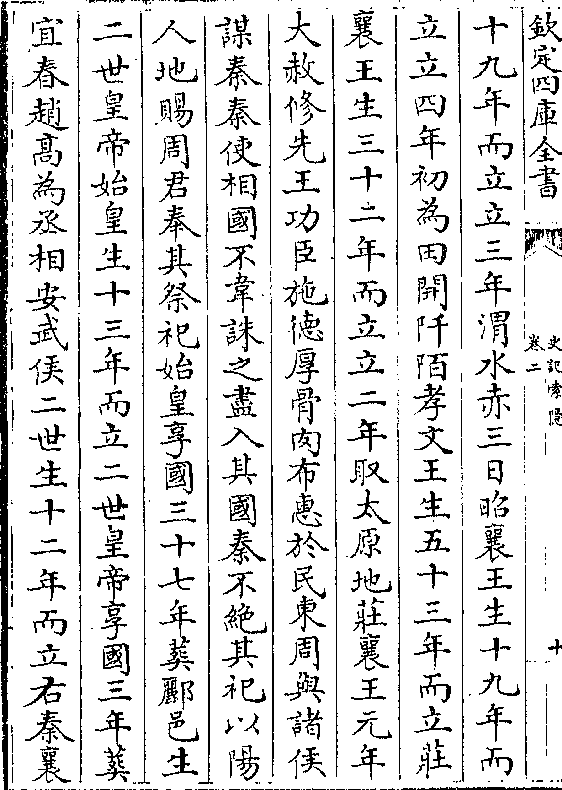 欽定四庫全書
史記索隱
卷二
十
十九年而立立三年渭水赤三日昭襄王生十九年而
立立四年初為田開阡陌孝文王生五十三年而立莊
襄王生三十二年而立立二年取太原地莊襄王元年
大赦修先王功臣施德厚骨肉布惠於民東周與諸侯
謀秦秦使相國不韋誅之盡入其國秦不絶其祀以陽
人地賜周君奉其祭祀始皇享國三十七年葬酈邑生
二世皇帝始皇生十三年而立二世皇帝享國三年葬
宜春趙髙為丞相安武侯二世生十二年而立右秦襄